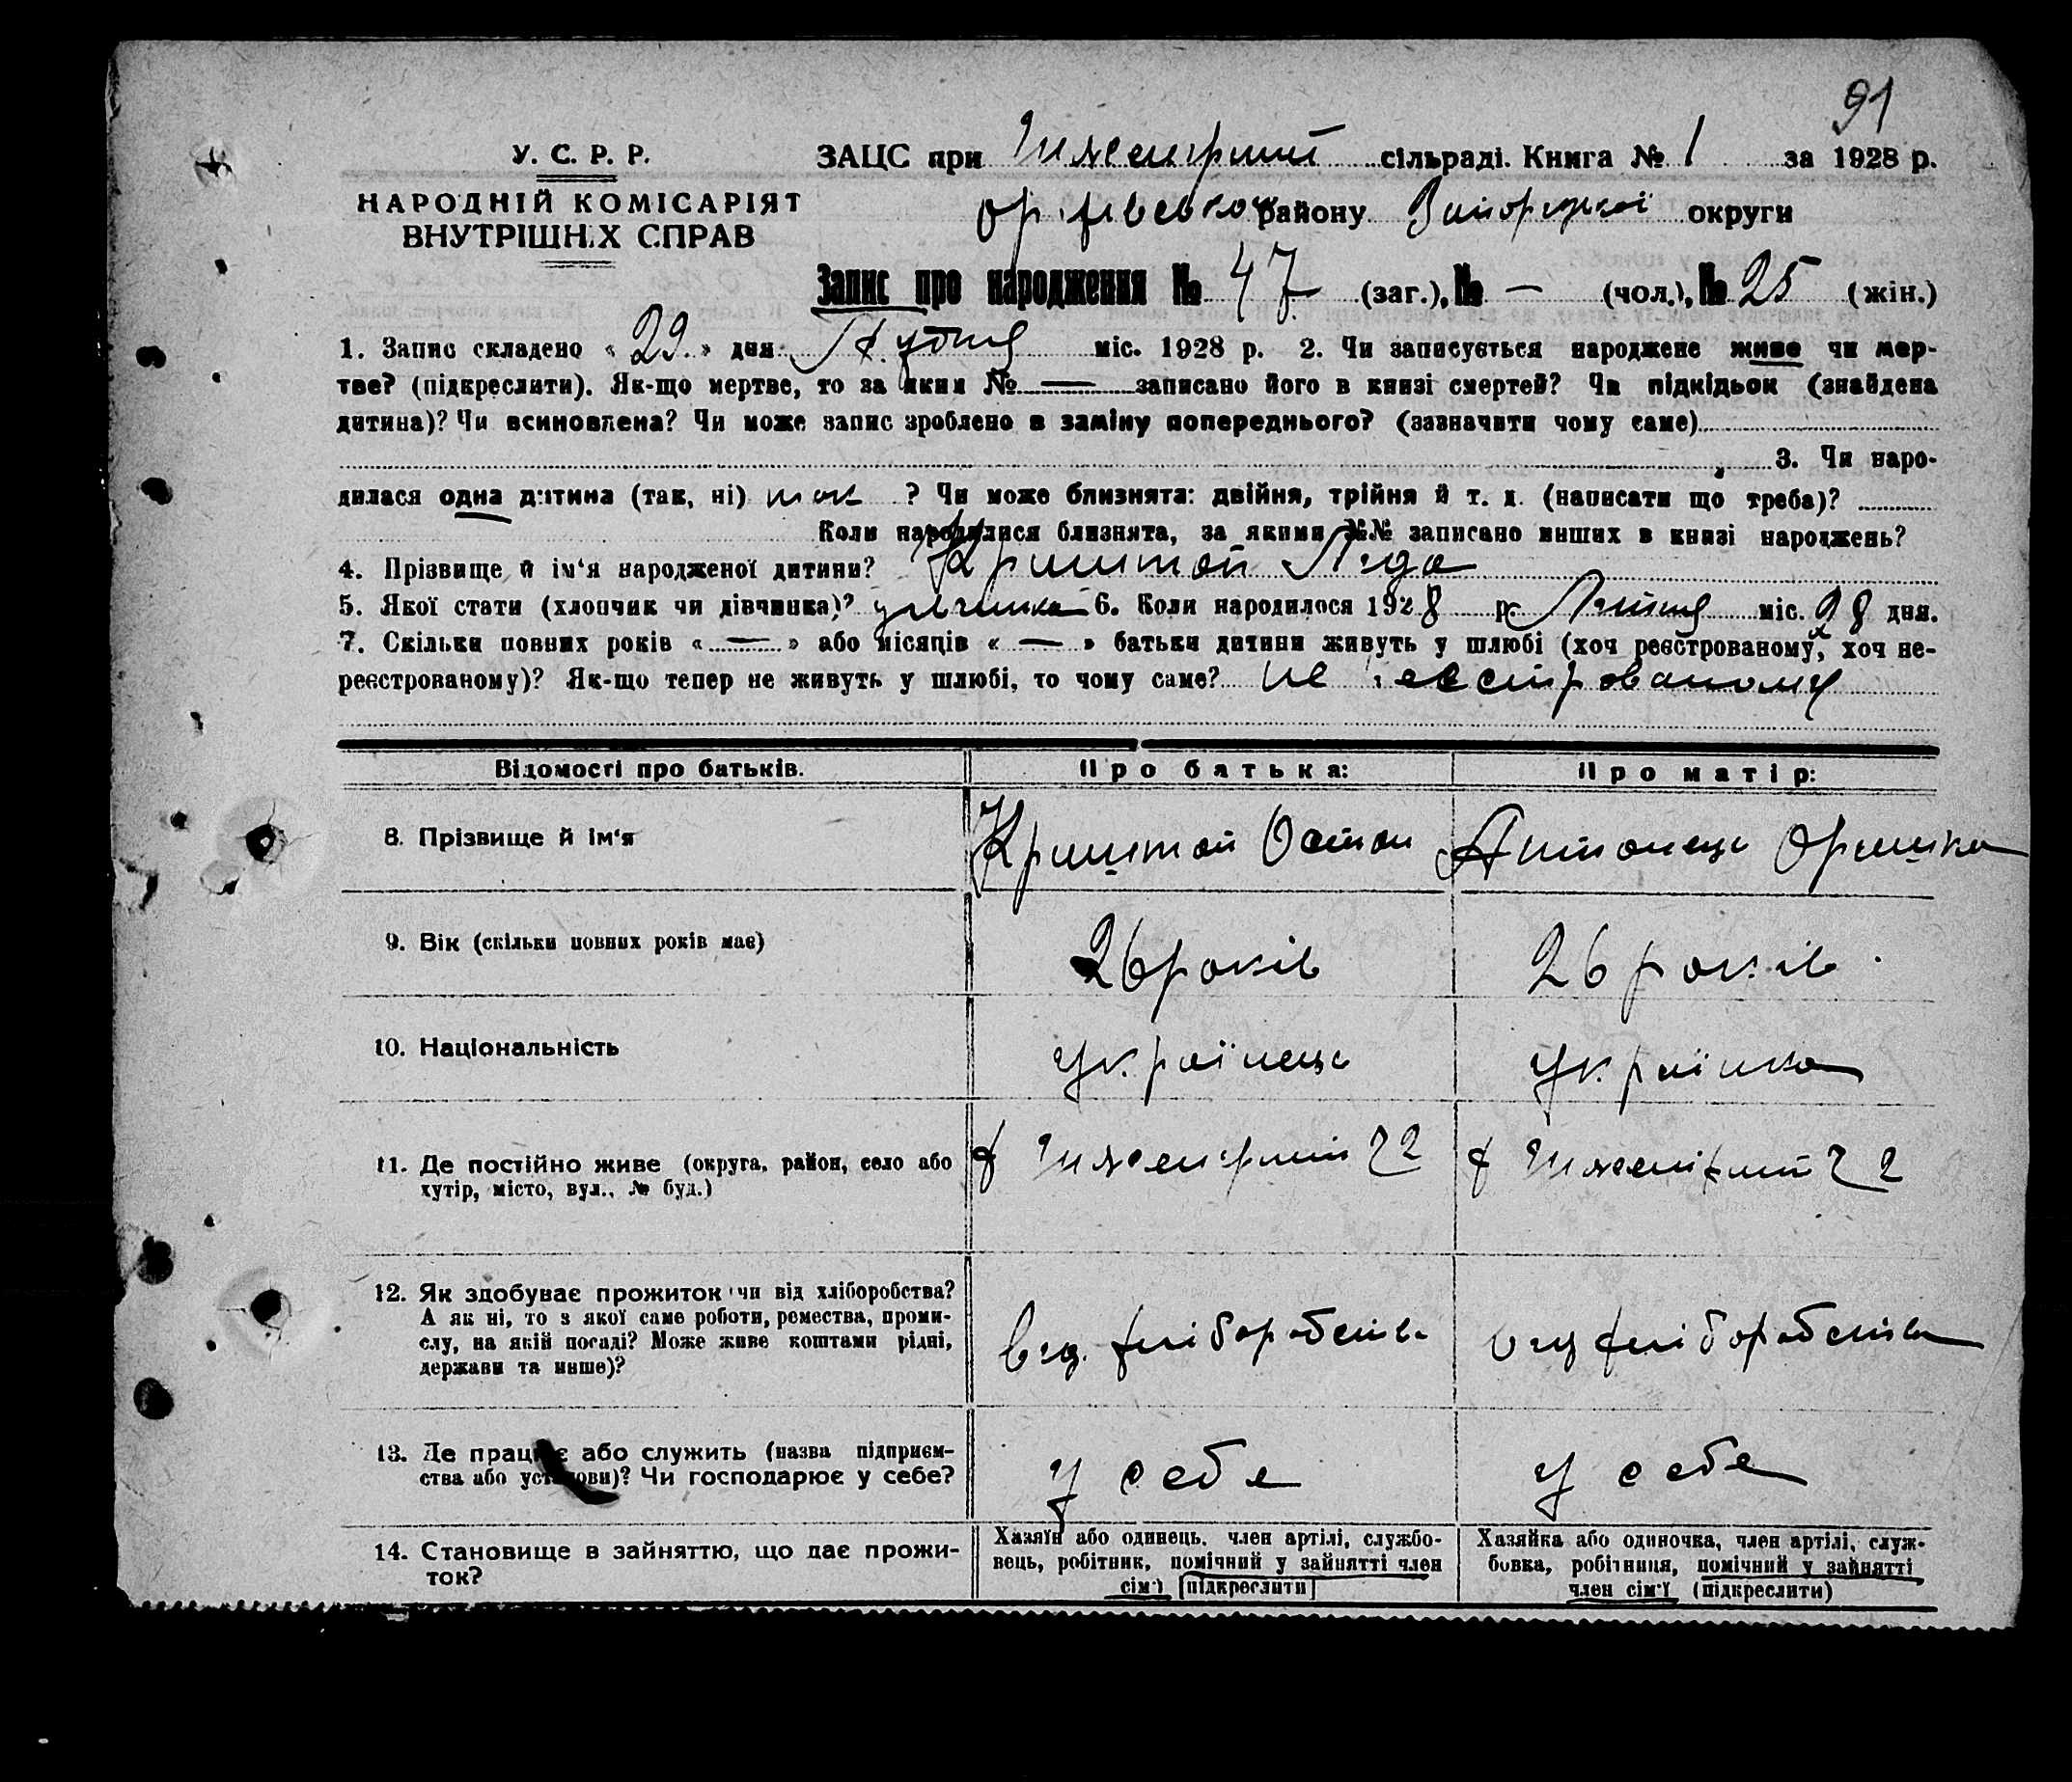 91
У. С. Р. Р.
НАРОДНІЙ КОМІСАРІЯТ
ВНУТРІШНІХ СПРАВ
ЗАЦС при сільраді. Книга № 1 за 1928 р.
району Запорізької округи
Запис про народження № 47 (заг.), № — (чол.), № 25 (жін.)
1. Запис складено « 29 » дня міс. 1928 р. 2. Чи записується народжене живе чи мер-
тве? (підкреслити). Як-що мертве, то за яким № — записано його в книзі смертей? Чи підкідьок (знайдена
дитина)? Чи всиновлена? Чи може запис зроблено в заміну попереднього? (зазначити чому саме)
3. Чи наро-
дилася одна дитина (так, ні) так ? Чи може близнята: двійня, трійня й т. д. (написати що треба)?
Коли народилися близнята, за якими №№ записано инших в книзі народжень?
4. Прізвище й ім'я народженої дитини? Криштоп Ліда
5. Якої стати (хлопчик чи дівчинка)? дівчинка 6. Коли народилося 1928 р. міс. дня.
7. Скільки повних років « — » або місяців « — » батьки дитини живуть у шлюбі (хоч реєстрованому, хоч не-
реєстрованому)? Як-що тепер не живуть у шлюбі, то чому саме? не реєстрованому
Відомості про батьків. Про батька: Про матір:
8. Прізвище й ім'я Криштоп Остап Антонець Оришка
9. Вік (скільки повних років має) 26 років 26 років
10. Національність Українець Українка
11. Де постійно живе (округа, район, село або
хутір, місто, вул., № буд.)
12. Як здобуває прожиток чи від хліборобства?
А як ні, то з якої саме роботи, ремества, проми-
слу, на якій посаді? Може живе коштами рідні,
держави та инше)?
від хліборобства від хліборобства
13. Де працює або служить (назва підприєм-
ства або установи)? Чи господарює у себе?
у себе у себе
14. Становище в зайняттю, що дає прожи-
ток?
Хазяїн або одинець, член артілі, службо-
вець, робітник, помічний у зайнятті член
сім'ї [підкреслити]
Хазяйка або одиночка, член артілі, служ-
бовка, робітниця, помічний у зайнятті
член сім'ї (підкреслити)